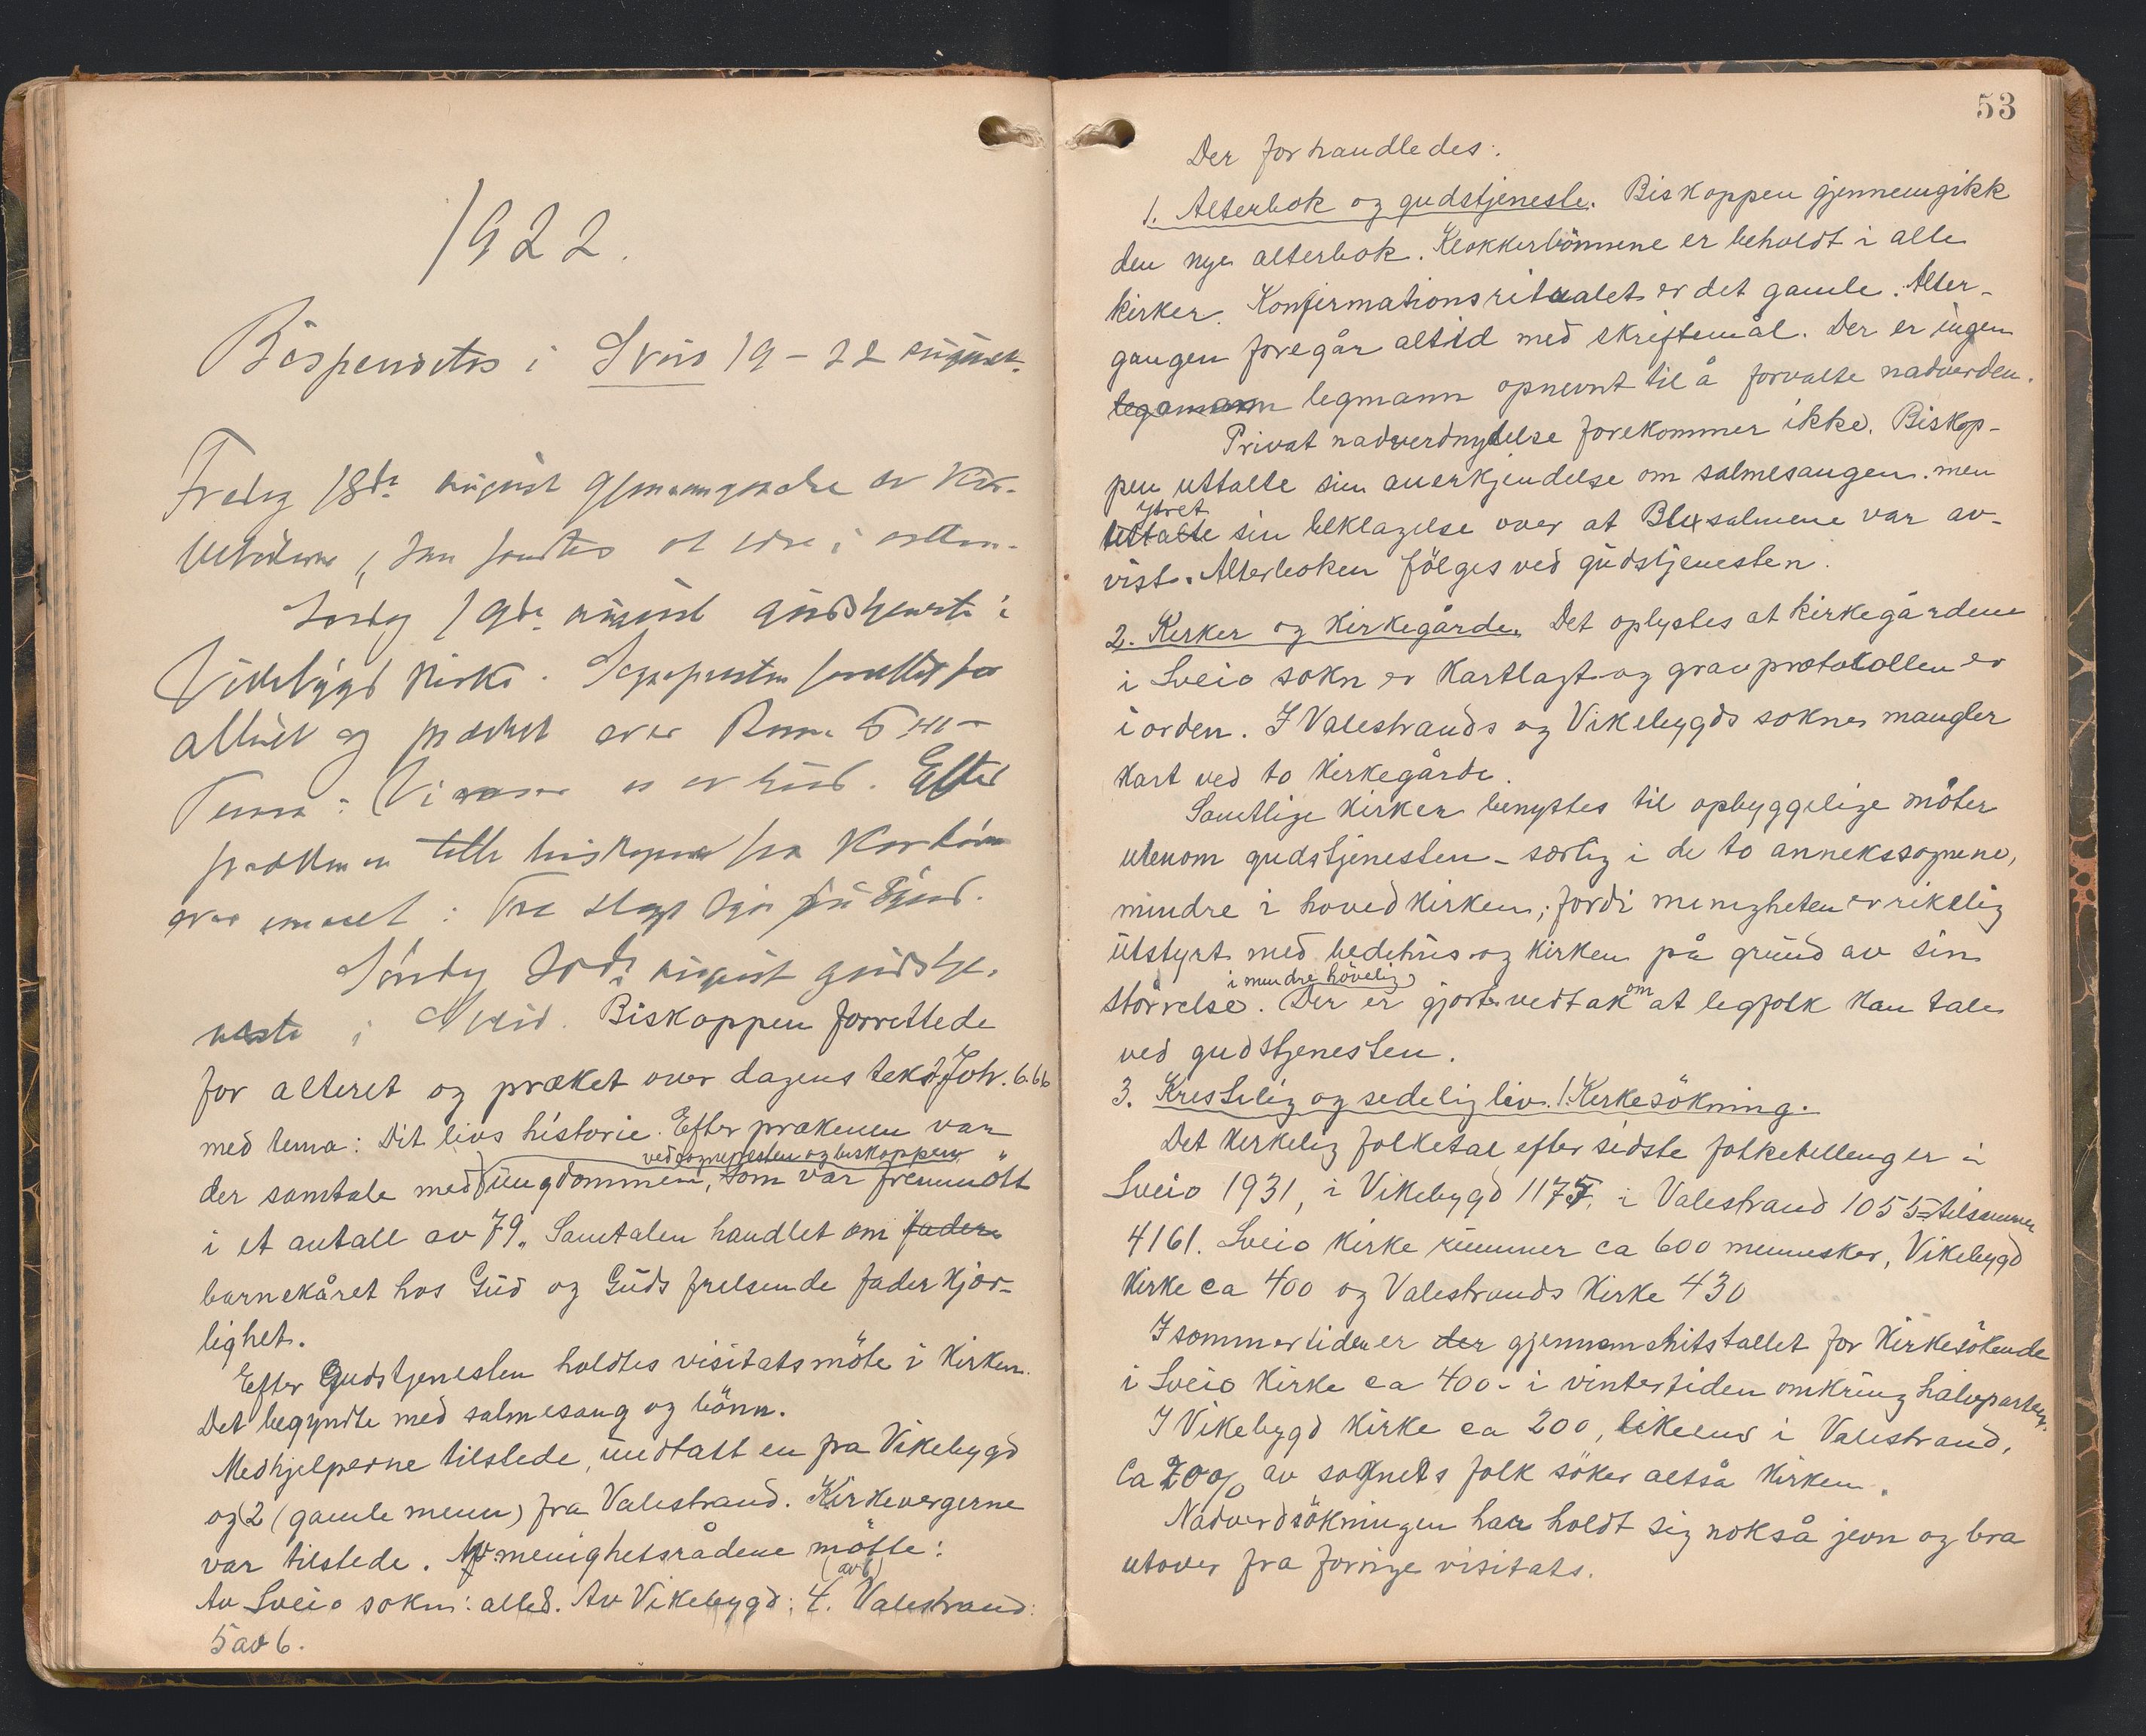 1922.
Bispevisitas i Sveio 19 – 22 august.
Fredag 18de august gjennemgaaelse av kir-
bøkerne, den fandtes at være i orden.
Lørdag 19de august gudstjeneste i
Vikebygd kirke. Sognepresten forrettet for
alteret og prædket over Rom. 5
Tema: Vi er av Gud. Efter
prædkenen talte biskopen fra kordøren
over emnet: Tre slags
Søndag 20de august gudstje-
neste i Sveio. Biskoppen forrettede
for alteret og præket over dagens tekst Joh. 6.66
med tema: Dit livs historie. Efter prækenen var
ved sognepresten og biskoppen
der samtale med ungdommen, som var fremmött
i et antall av 79. Samtalen handlet om fader
barnekåret hos Gud og Guds frelsende faderkjær-
lighet.
Efter Gudstjenesten holdtes visitatsmöte i kirken.
Det begyndte med salmesang og bönn.
Medhjelperne tilstede, undtatt en fra Vikebygd
og 2 (gamle menn) fra Valestrand. Kirkevergerne
var tilstede. Af menighetsrådene mötte:
(av 6)
Av Sveio sokn: alle 8. Av Vikebygd: 4. Valestrand:
5 av 6.
53
Der forhandledes:
1. Alterbok og gudstjeneste. Biskoppen gjennemgikk
den nye alterbok. Klokkerbönnene er beholdt i alle
kirker. Konfirmationsritualet er det gamle. Alter-
gangen foregår altid med skriftemål. Der er ingen
legamann legmann opnevnt til å forvalte nadverden.
Privat nadverdnydelse forekommer ikke. Biskop-
pen uttalte sin anerkjendelse om salmesangen. men
ytret
uttalte sin beklagelse over at Blixsalmene var av-
vist. Alterboken fölges ved gudstjenesten.
2. Kirker og Kirkegårde. Det oplystes at kirkegårdene
i Sveio sokn er kartlagt og gravprotokollen er
i orden. I Valestrands og Vikebygds sokne mangler
kart ved to kirkegårde.
Samtlige kirker benyttes til opbyggelige möter
utenom gudstjenesten – særlig i de to annekssognene,
mindre i hovedkirken; fordi menigheten er rikelig
utstyrt med bedehus og kirken på grund av sin
i mindre hövelig
störrelse. Der er gjort vedtak om at legfolk kan tale
ved gudstjenesten.
3. Kristelig og sedelig liv. 1. Kirkesökning.
Det kirkelig folketal efter sidste folketelling er i
Sveio 1931, i Vikebygd 1175, i Valestrand 1055 = tilsammen
4161. Sveio kirke rummer ca 600 mennesker, Vikebygd
kirke ca 400 og Valestrands kirke 430
I sommertiden er der gjennemsnitstallet for kirkesökende
i Sveio kirke ca 400 – i vintertiden omkring halvparten.
I Vikebygd kirke ca 200, likeens i Valestrand.
Ca 20% av sognets folk söker altså kirken.
Nadverdsökningen har holdt sig nokså jevn og bra
utover fra forrige visitats.